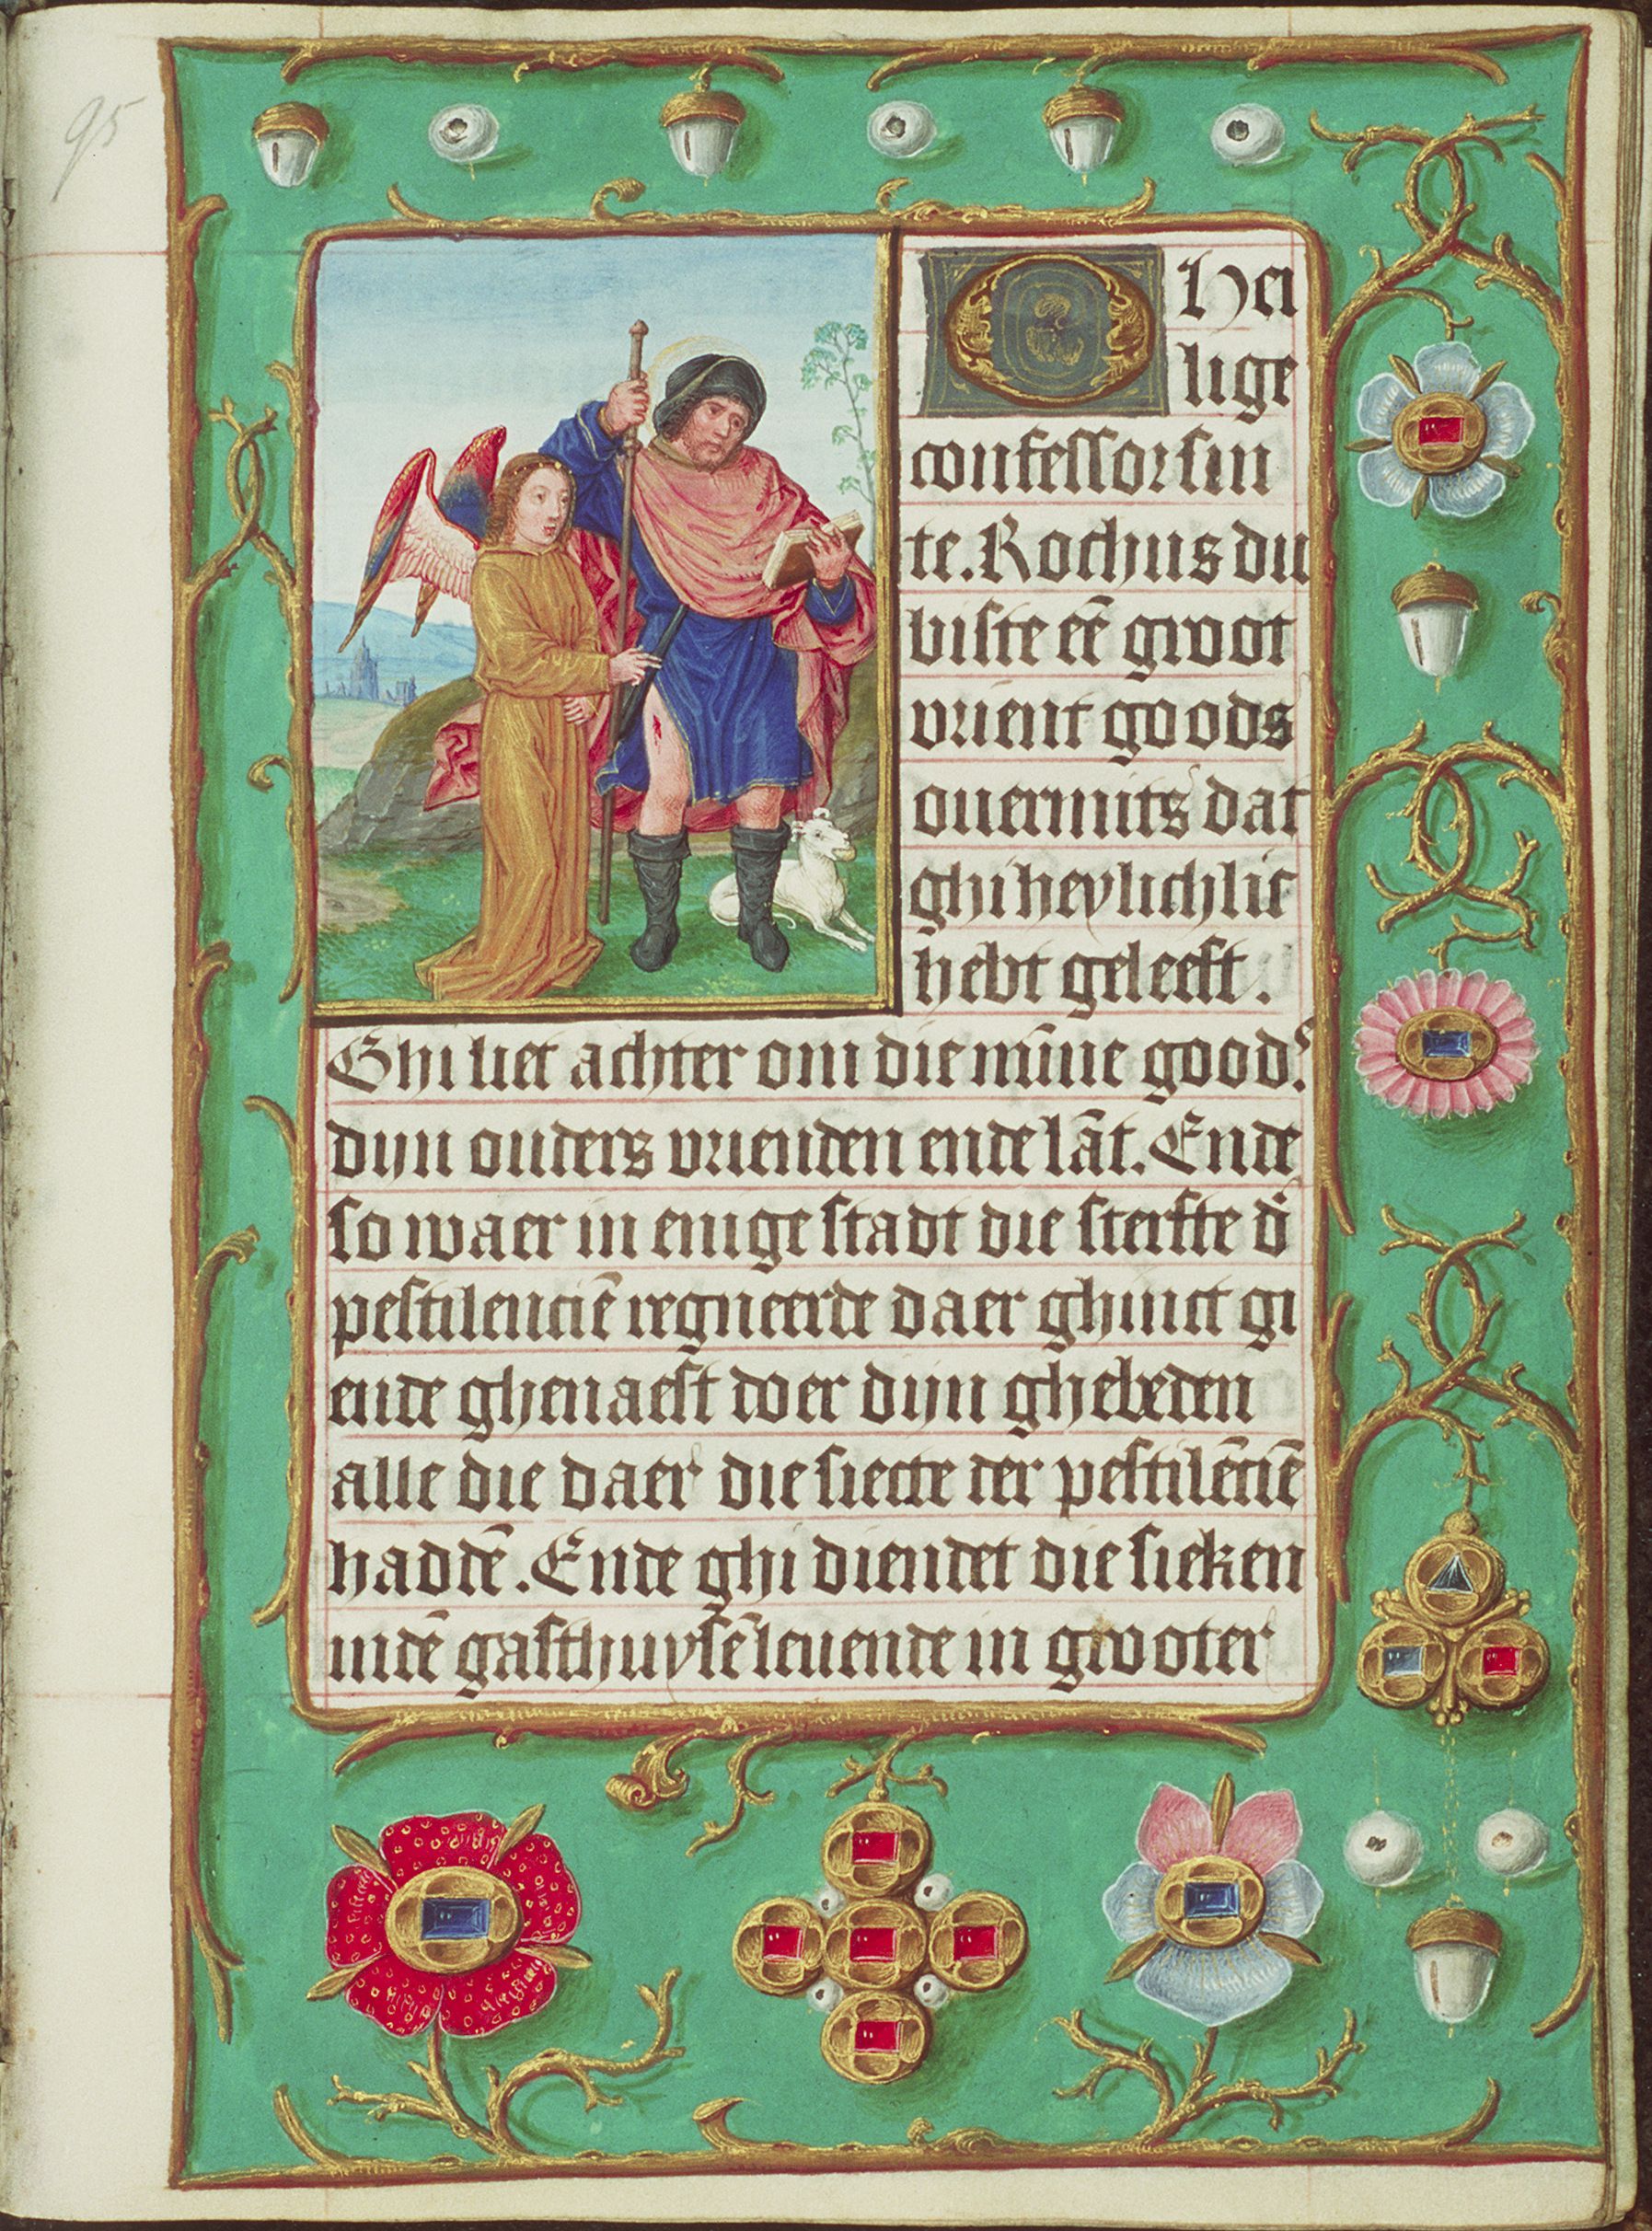 95
O Hei
lige
confessor sin
te. Rochus du
biste eē groot
vrient goods
ouermits dat
ghi heylichlic
hebt geleeft.
Ghi liet achter om die mīne good?
dyn ouders vrienden ende lāt. Ende
so waer in enige stadt die sterfte d'
pestilenciē regneerde daer ghinct gi
ende ghenaest doer dyn ghebeden
alle die daer die siecte der pestilēciē
haddē. Ende ghi diendet die sieken
indē gasthuysē leuende in grooter